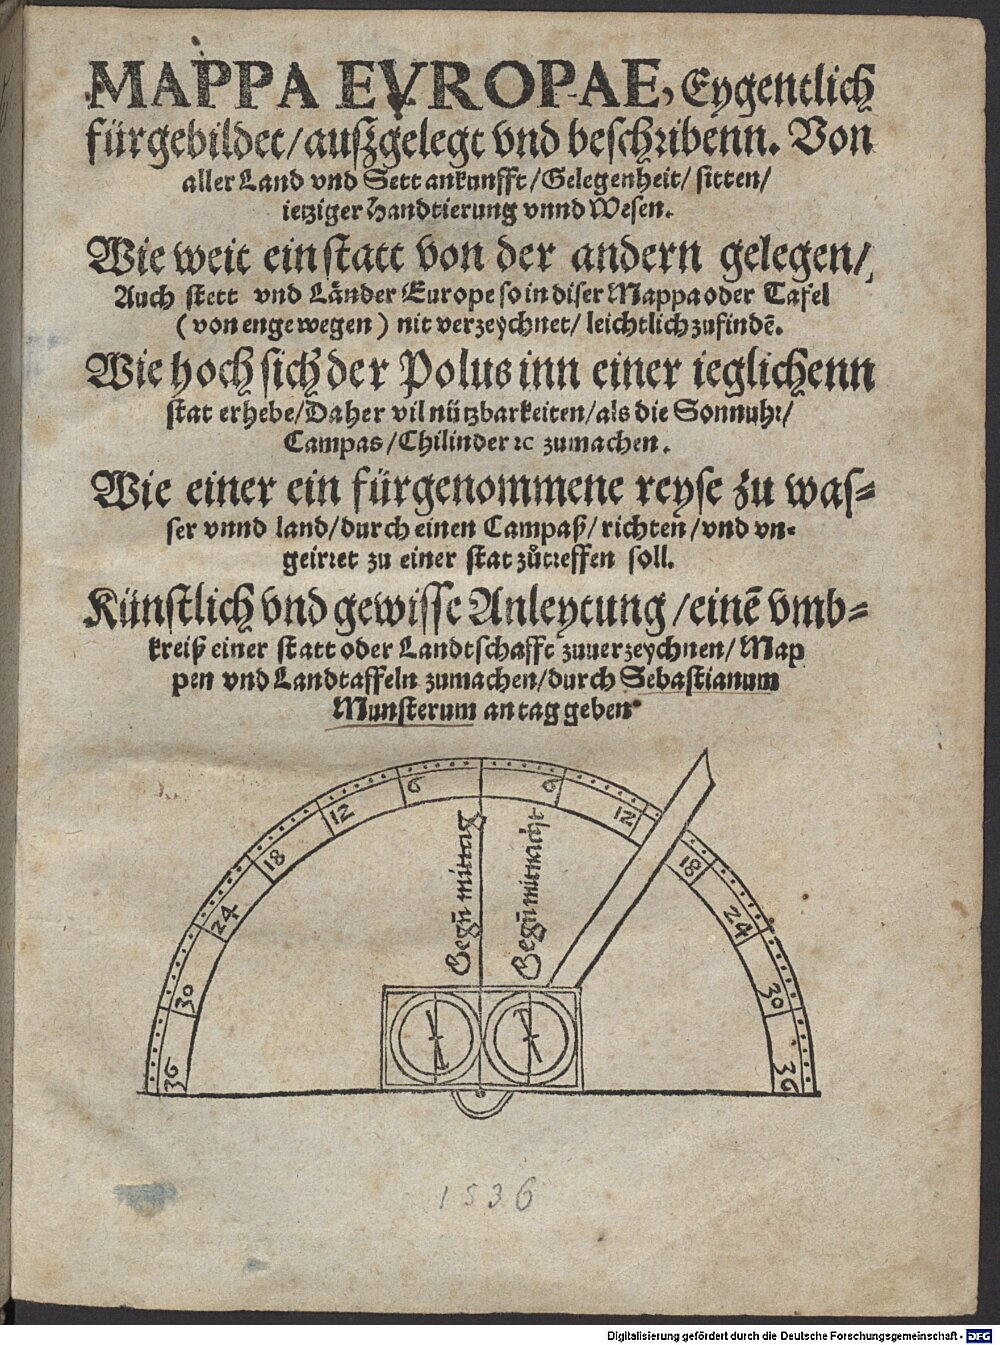 MAPPA EVROPAE, Eygentlich
fürgebildet/auſzgelegt vnd beſchribenn. Von
aller Land vnd Sett ankunfft/Gelegenheit/ſitten/
ietziger Handtierung vnnd Weſen.
Wie weit ein ſtatt von der andern gelegen/
Auch ſtett vnd Länder Europe ſo in diſer Mappa oder Tafel
(von enge wegen) nit verzeychnet/ leichtlich zufindē.
Wie hoch ſich der Polus inn einer ieglichenn
ſtat erhebe/Daher vil nützbarkeiten/als die Sonnuhr/
Campas/Chilinder ꝛc zumachen.
Wie einer ein fürgenommene reyſe zu waſ⸗
ſer vnnd land/durch einen Campaß/ richten/vnd vn⸗
geirret zu einer ſtat zůtreffen ſoll.
Künſtlich vnd gewiſſe Anleytung/einē vmb⸗
kreiß einer ſtatt oder Landtſchafft zuuerzeychnen/Map
pen vnd Landtaffeln zumachen/durch Sebaſtianum
Munſterum an tag geben
6 6
12 12
18 18
24 24
30 30
36 36
Gegū mittag
Gegū mitnacht
1536
Digitalisierung gefördert durch die Deutsche Forschungsgemeinschaft - DFG